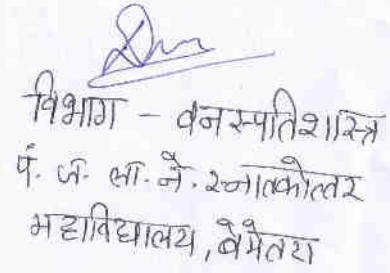 विभाग - वनस्पतिशास्त्र
पं. ज. ला. ने. स्नातकोत्तर
महाविद्यालय, बेमेतरा